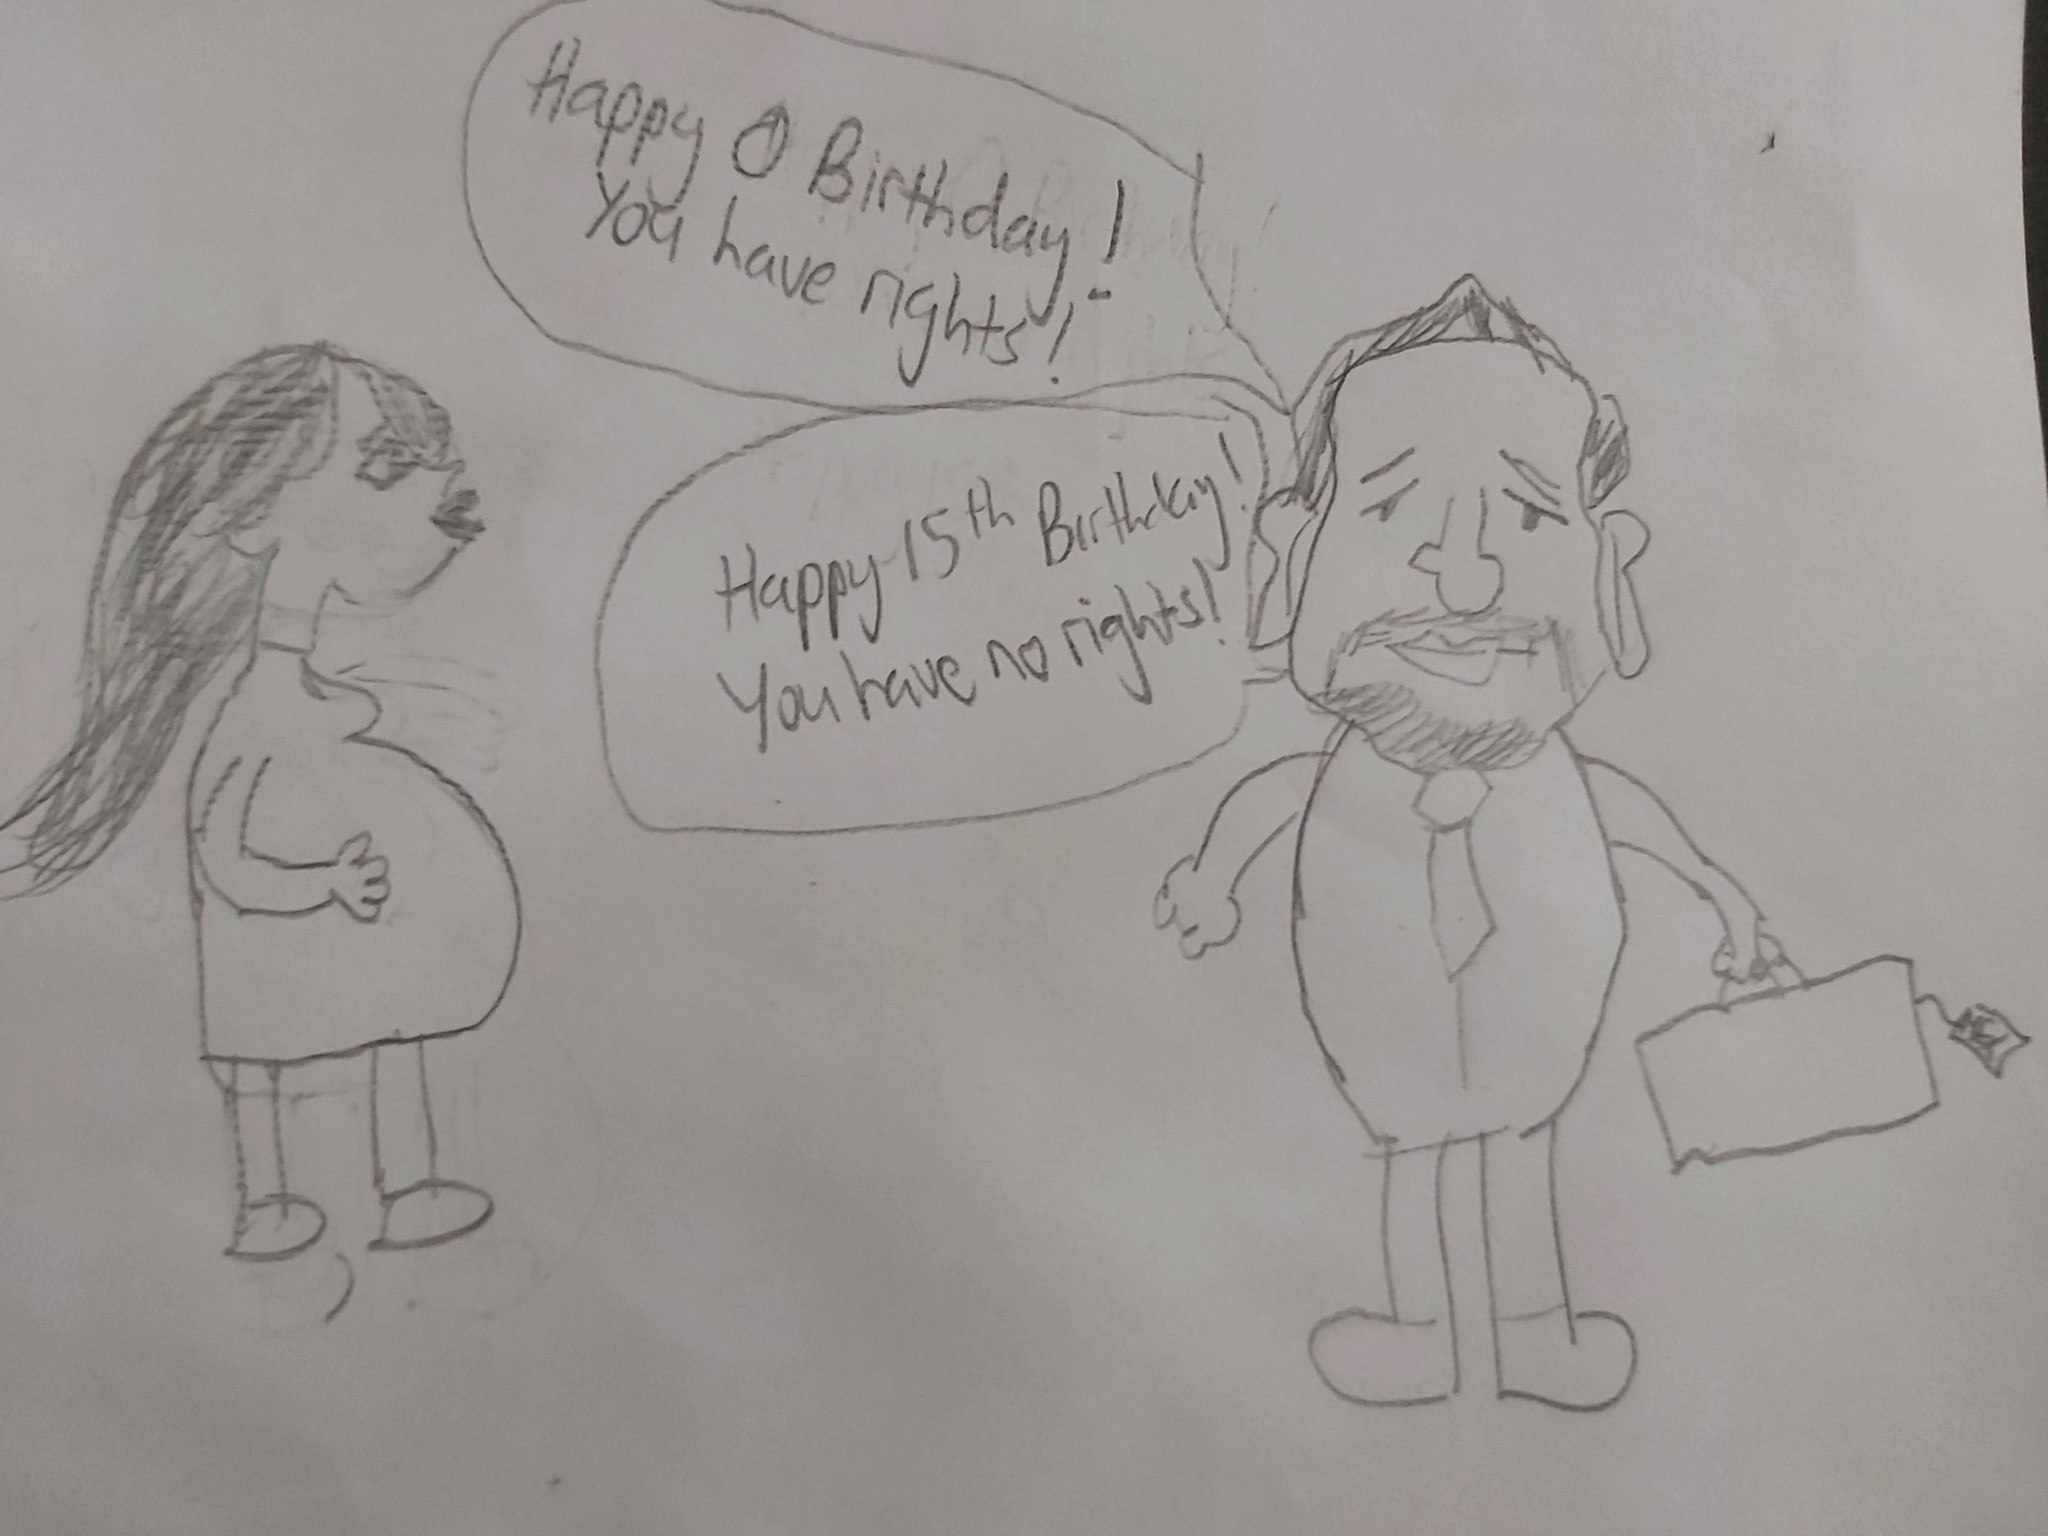 Happy 0 Birthday!
You have rights!
Happy 15th Birthday!
You have no rights!